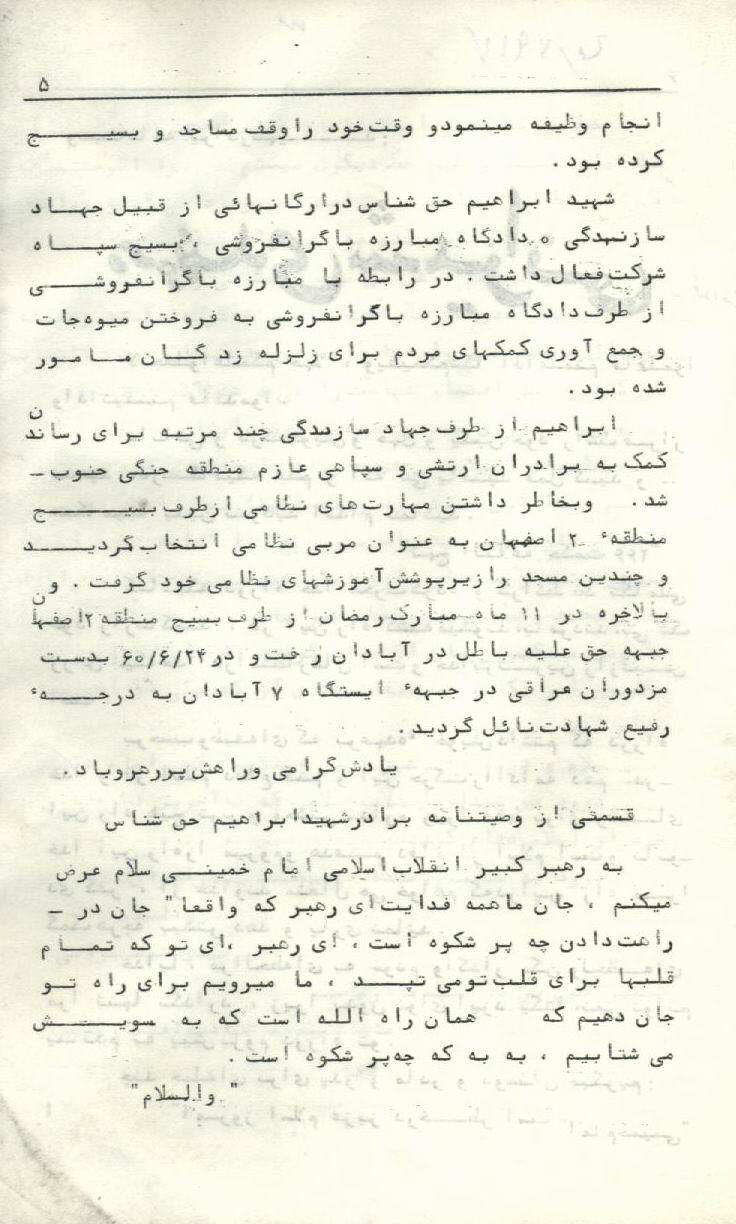 ۵
انجام وظیفه مینمودو وقت‌خود راوقف مساجد و بسیج
کرده بود.
شهید ابراهیم حق شناس درارگانهائی از قبیل جهاد
سازندگی ه دادگاه مبارزه باگرانفروشی ، بسیج سپاه
شرکت‌فعال داشت . در رابطه با مبارزه باگرانفروشی
از طرف‌دادگاه مبارزه باگرانفروشی به فروختن میوه‌جات
و جمع آوری کمکهای مردم برای زلزله زدگان مامور
شده بود.
ابراهیم از طرف‌جهاد سازندگی چند مرتبه برای رساندن
کمک به برادران ارتشی و سپاهی عازم منطقه جنگی جنوب -
شد. وبخاطر داشتن مهارت‌های نظامی ازطرف بسیج
منطقهٔ ۲ اصفهان به عنوان مربی نظامی انتخاب‌گردید
و چندین مسجد رازیرپوشش‌آموزشهای نظامی خود گرفت . و
بالاخره در ۱۱ ماه مبارک‌رمضان از طرف بسیج منطقه ۲اصفهان
جبهه حق علیه باطل در آبادان رفت‌و در۶۰/۶/۲۴ بدست
مزدوران عراقی در جبههٔ ایستگاه ۷ آبادان به درجهٔ
رفیع شهادت‌نائل گردید.
یادش‌گرامی وراهش‌پررهروباد.
قسمتی از وصیتنامه برادرشهیدابراهیم حق شناس
به رهبر کبیر انقلاب‌اسلامی امام خمینی سلام عرض
میکنم ، جان ماهمه فدایت‌ای رهبر که واقعا" جان در -
راهت‌دادن چه پر شکوه است ، ای رهبر ،ای تو که تمام
قلبها برای قلب‌تومی تپد ، ما میرویم برای راه تو
جان دهیم که همان راه الله است که به سویش
می شتابیم ، به به که چه‌پر شکوه است .
" والسلام"